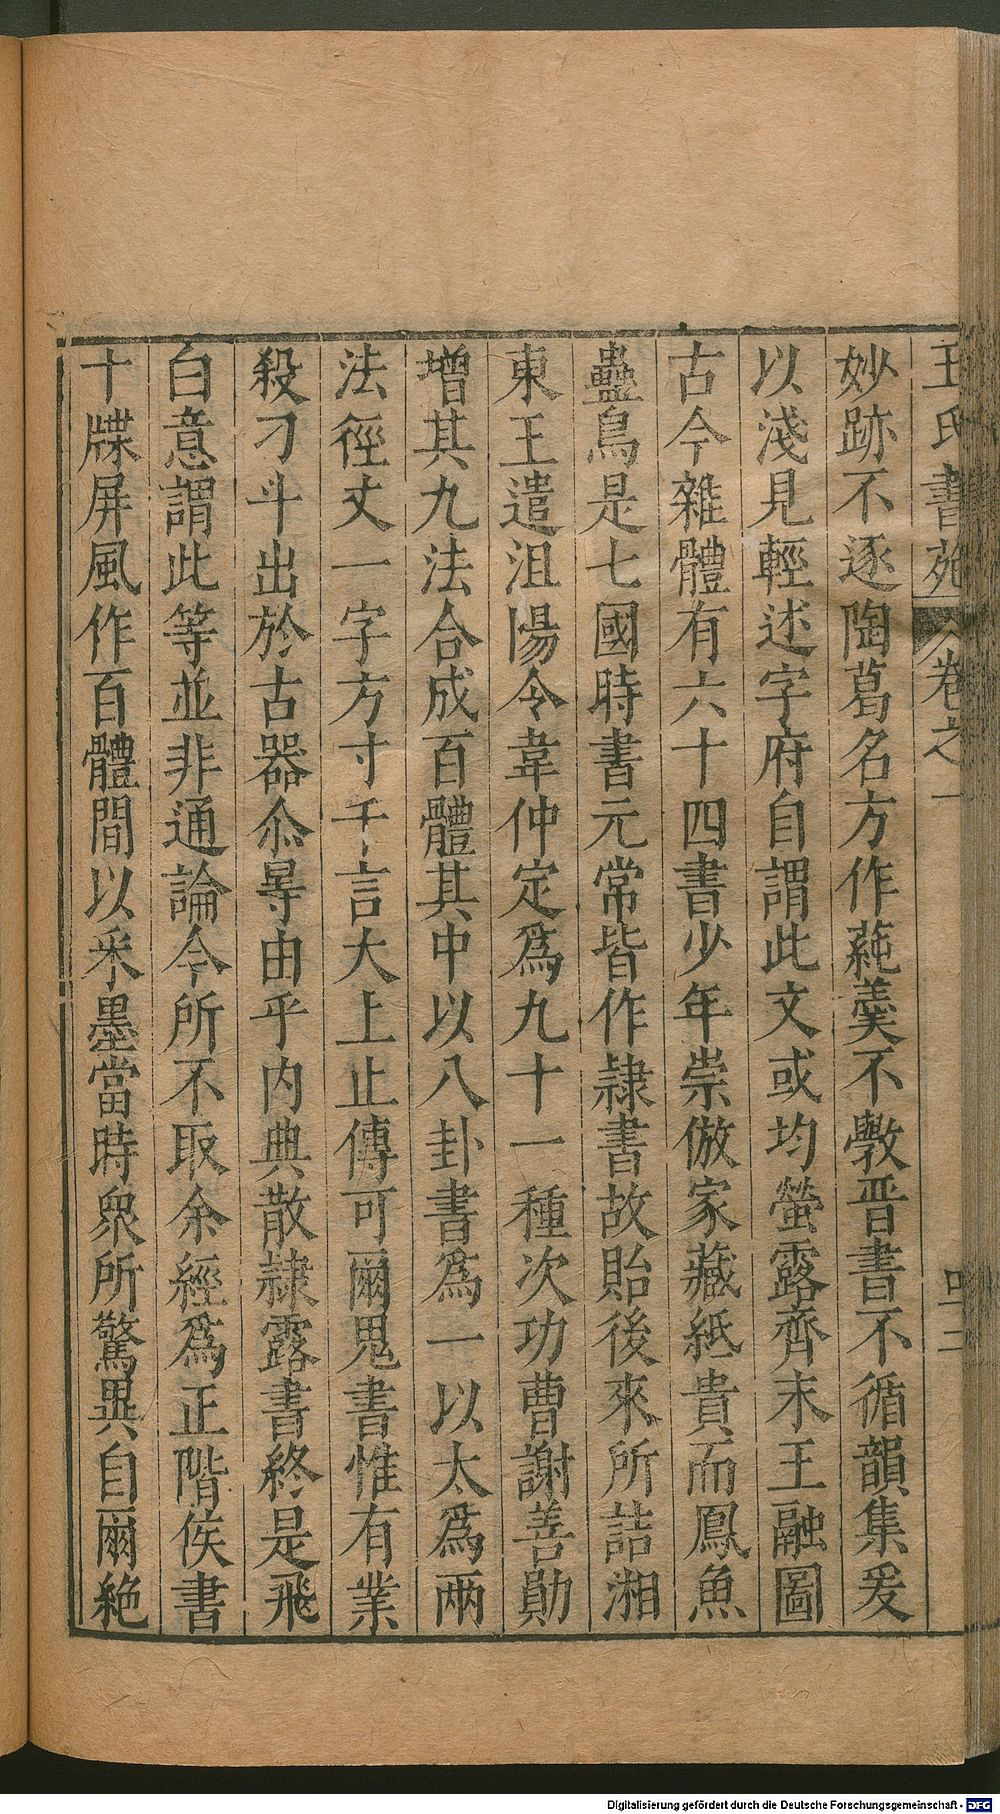 王氏書苑 卷之一 四十二
妙跡不逐陶葛名方作蒓羹不斆晋書不循韻集爰
以淺見輕述字府自謂此文或均螢露齊末王融圖
古今雜體有六十四書少年崇倣家藏紙貴而鳳魚
蟲鳥是七國時書元常皆作隷書故貽後來所詰湘
東王遣沮陽令韋仲定爲九十一種次功曹謝善勛
增其九法合成百體其中以八卦書爲一以太爲兩
法徑丈一字方寸千言大上止傳可爾鬼書惟有業
殺刁斗出於古器尒㝷由乎内典散隷露書終是飛
白意謂此等並非通論今所不取余經爲正階侯書
十牒屏風作百體間以采墨當時衆所驚異自爾絶
Digitalisierung gefördert durch die Deutsche Forschungsgemeinschaft - DFG